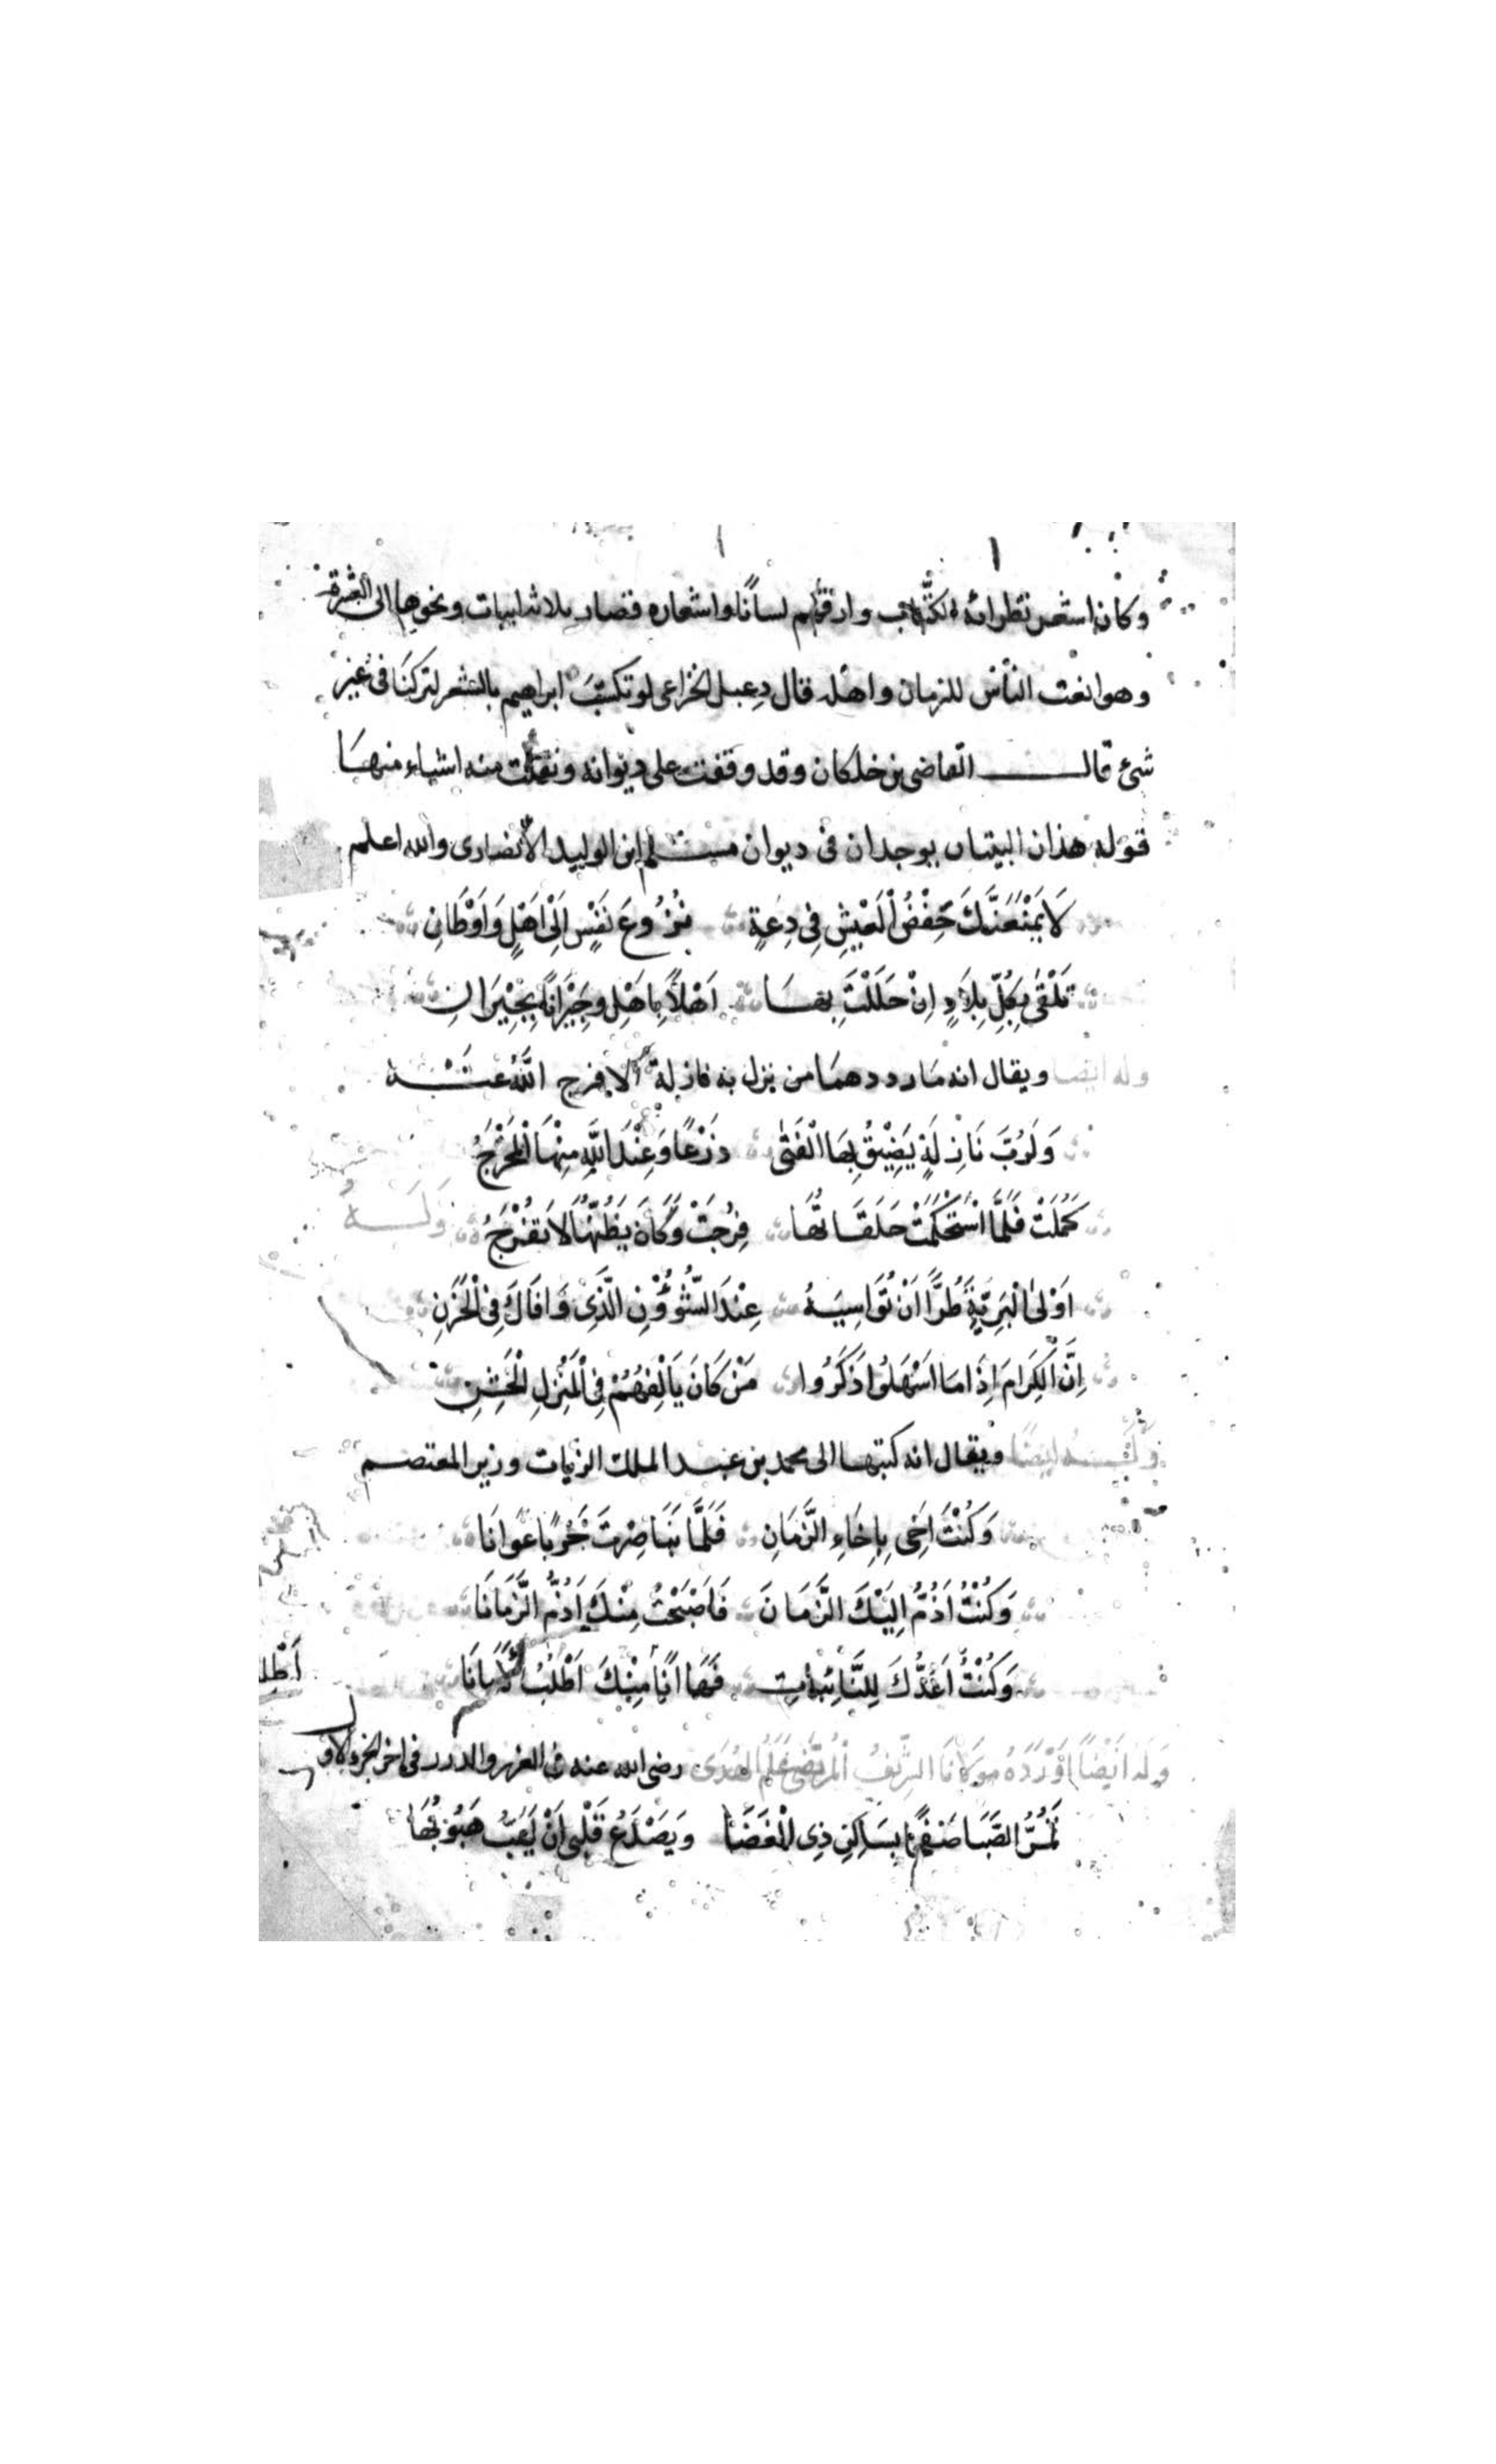 وكان اشعر نظرائه الكتاب وارقهم لسانا واشعاره قصار ثلاثة ابيات ونحوها الى العشرة
وهو انعت الناس للزمان واهله قال دعبل الخزاعى لو تكسب ابراهيم بالشعر لتركنا فى غير
شئ قال القاضى بن خلكان وقد وقفت على ديوانه ونقلت منه اشياء منها
قوله هذان البيتان يوجدان فى ديوان مسلم ابن الوليد الانصارى والله اعلم
لَا يَمْنَعَنَّكَ خَفْضُ الْعَيْشِ فِى دِعَةٍ نُزُوعَ نَفْسٍ اِلٰى اَهْلٍ وَاَوْطَانِ
تَلْقٰى بِكُلِّ بِلَادٍ اِنْ حَلَلْتَ بِهَا اَهْلًا بِاَهْلٍ وَجِيْرَانًا بِجِيْرَانِ
وله ايضا ويقال انه ما رددهما من نزل به نازلة الا فرج اللّٰه عنه
وَلَرُبَّ نَازِلَةٍ يَضِيْقُ بِهَا الْفَتٰى ذَرْعًا وَعِنْدَ اللّٰهِ مِنْهَا الْمَخْرَجُ
كَمُلَتْ فَلَمَّا اسْتَحْكَمَتْ حَلَقَاتُهَا فُرِجَتْ وَكَانَ يَظُنُّهَا لَا تُفْرَجُ وَلَهُ
اَوْلَى الْبَرِيَّةِ طُرًّا اَنْ تُوَاسِيَهُ عِنْدَ السُّؤُوْنِ الَّذِى وَافَاكَ فِى الْحَزَنِ
اِنَّ الْكِرَامَ اِذَا مَا اَسْهَلُوْا ذَكَرُوا مَنْ كَانَ يَاْلَفُهُمْ فِى الْمَنْزِلِ الْخَشِنِ
وله ايضًا ويقال انه كتبها الى محمد بن عبد الملك الزيات وزير المعتصم
وَكُنْتَ اَخِى بِاِخَاءِ الزَّمَانِ فَلَمَّا نَبَا صِرْتَ حَرْبًا عَوَانَا
وَكُنْتُ اَذُمُّ اِلَيْكَ الزَّمَانَ فَاَصْبَحْتُ مِنْكَ اَذُمُّ الزَّمَانَا
وَكُنْتُ اَعُدُّكَ لِلنَّائِبَاتِ فَهَا اَنَا مِنْكَ اَطْلُبُ الْاَمَانَا
وَلَه اَيْضًا اَوْرَدَهُ مَوْلَانَا الشَّرِيْفُ الْمُرْتَضٰى عَلَمُ الْهُدٰى رضى الله عنه فى الغرر والدرر فى اخر الجزو الاو
تَمُرُّ الصَّبَا صَفْحًا بِسَاكِنِ ذِى الْغَضَا وَيَصْدَعُ قَلْبِى اَنْ يَهُبَّ هُبُوْبُهَا